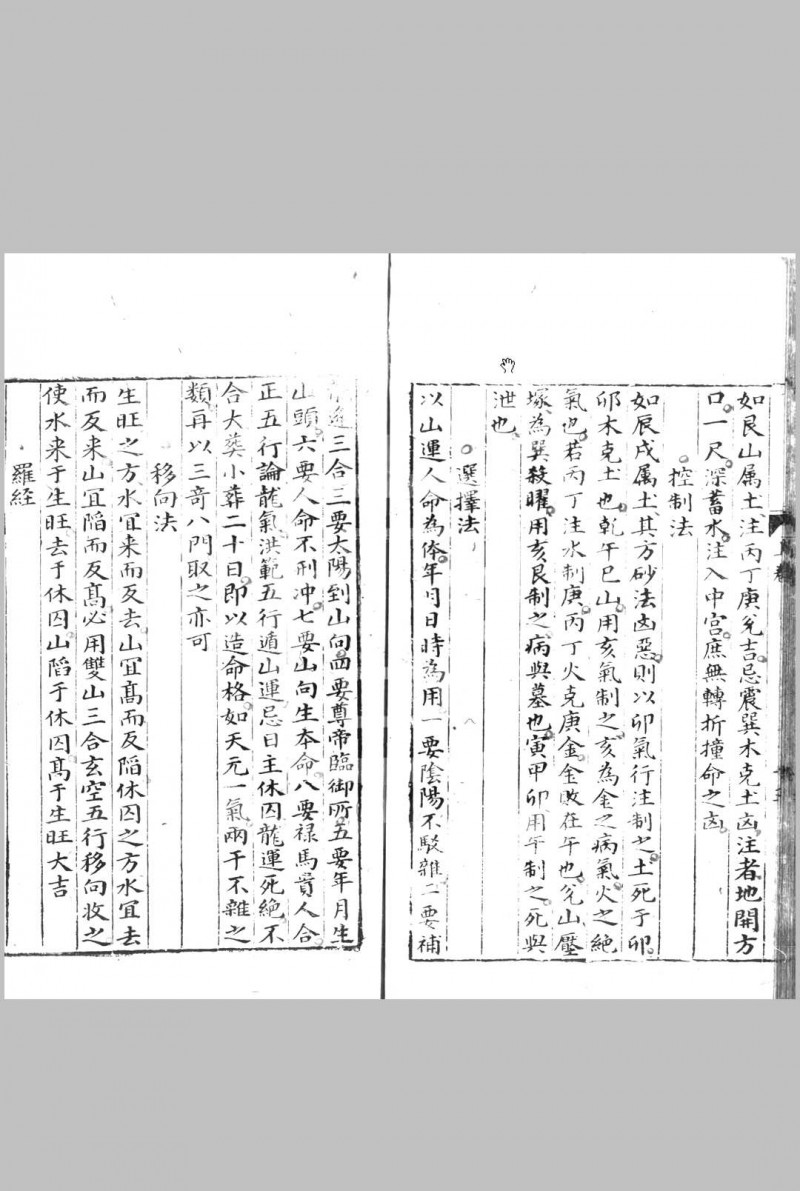 如艮山属土注丙丁庚兊吉忌震巽木克土凶注者地開方
口一尺深蓄水注入中宫庶無轉折撞命之凶
控制法
如辰戌属土其方砂法凶惡則以卯氣行注制之土死于卯
卯木克土也乾午巳山用亥氣制之亥為金之病氣火之絶
氣也若丙丁注水制庚丙丁火克庚金金敗在午也兊山壓
塚為巽殺曜用亥艮制之病與墓也寅甲卯用午制之死與
泄也
選擇法
以山運人命為体年月日時為用一要陰陽不駁雜二要補
三合三要太陽到山向四要尊帝臨御所五要年月生
山頭六要人命不刑冲七要山向生本命八要禄馬貴人合
正五行論龍氣洪範五行遁山運忌日主休囚龍運死絶不
合大葬小葬二十日即以造命格如天元一氣兩干不雜之
類再以三奇八門取之亦可
移向法
生旺之方水宜来而反去山宜髙而反陷休囚之方水宜去
而反来山宜陷而反髙必用雙山三合玄空五行移向收之
使水来于生旺去于休囚山陷于休囚髙于生旺大吉
羅経